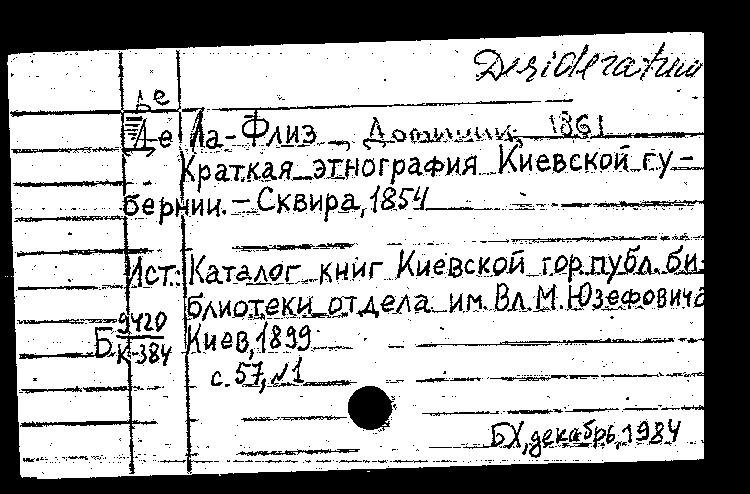 Desideratum
Де
Де Ла-Флиз, 1861
Краткая этнография Киевской гу-
бернии. - Сквира, 1854
Ист.: Каталог книг Киевской гор. публ. би-
блиотеки отдела им. Вл. М. Юзефовича
Б 9420/К-384 Киев, 1899
с. 57, №1
БХ, декабрь, 1984